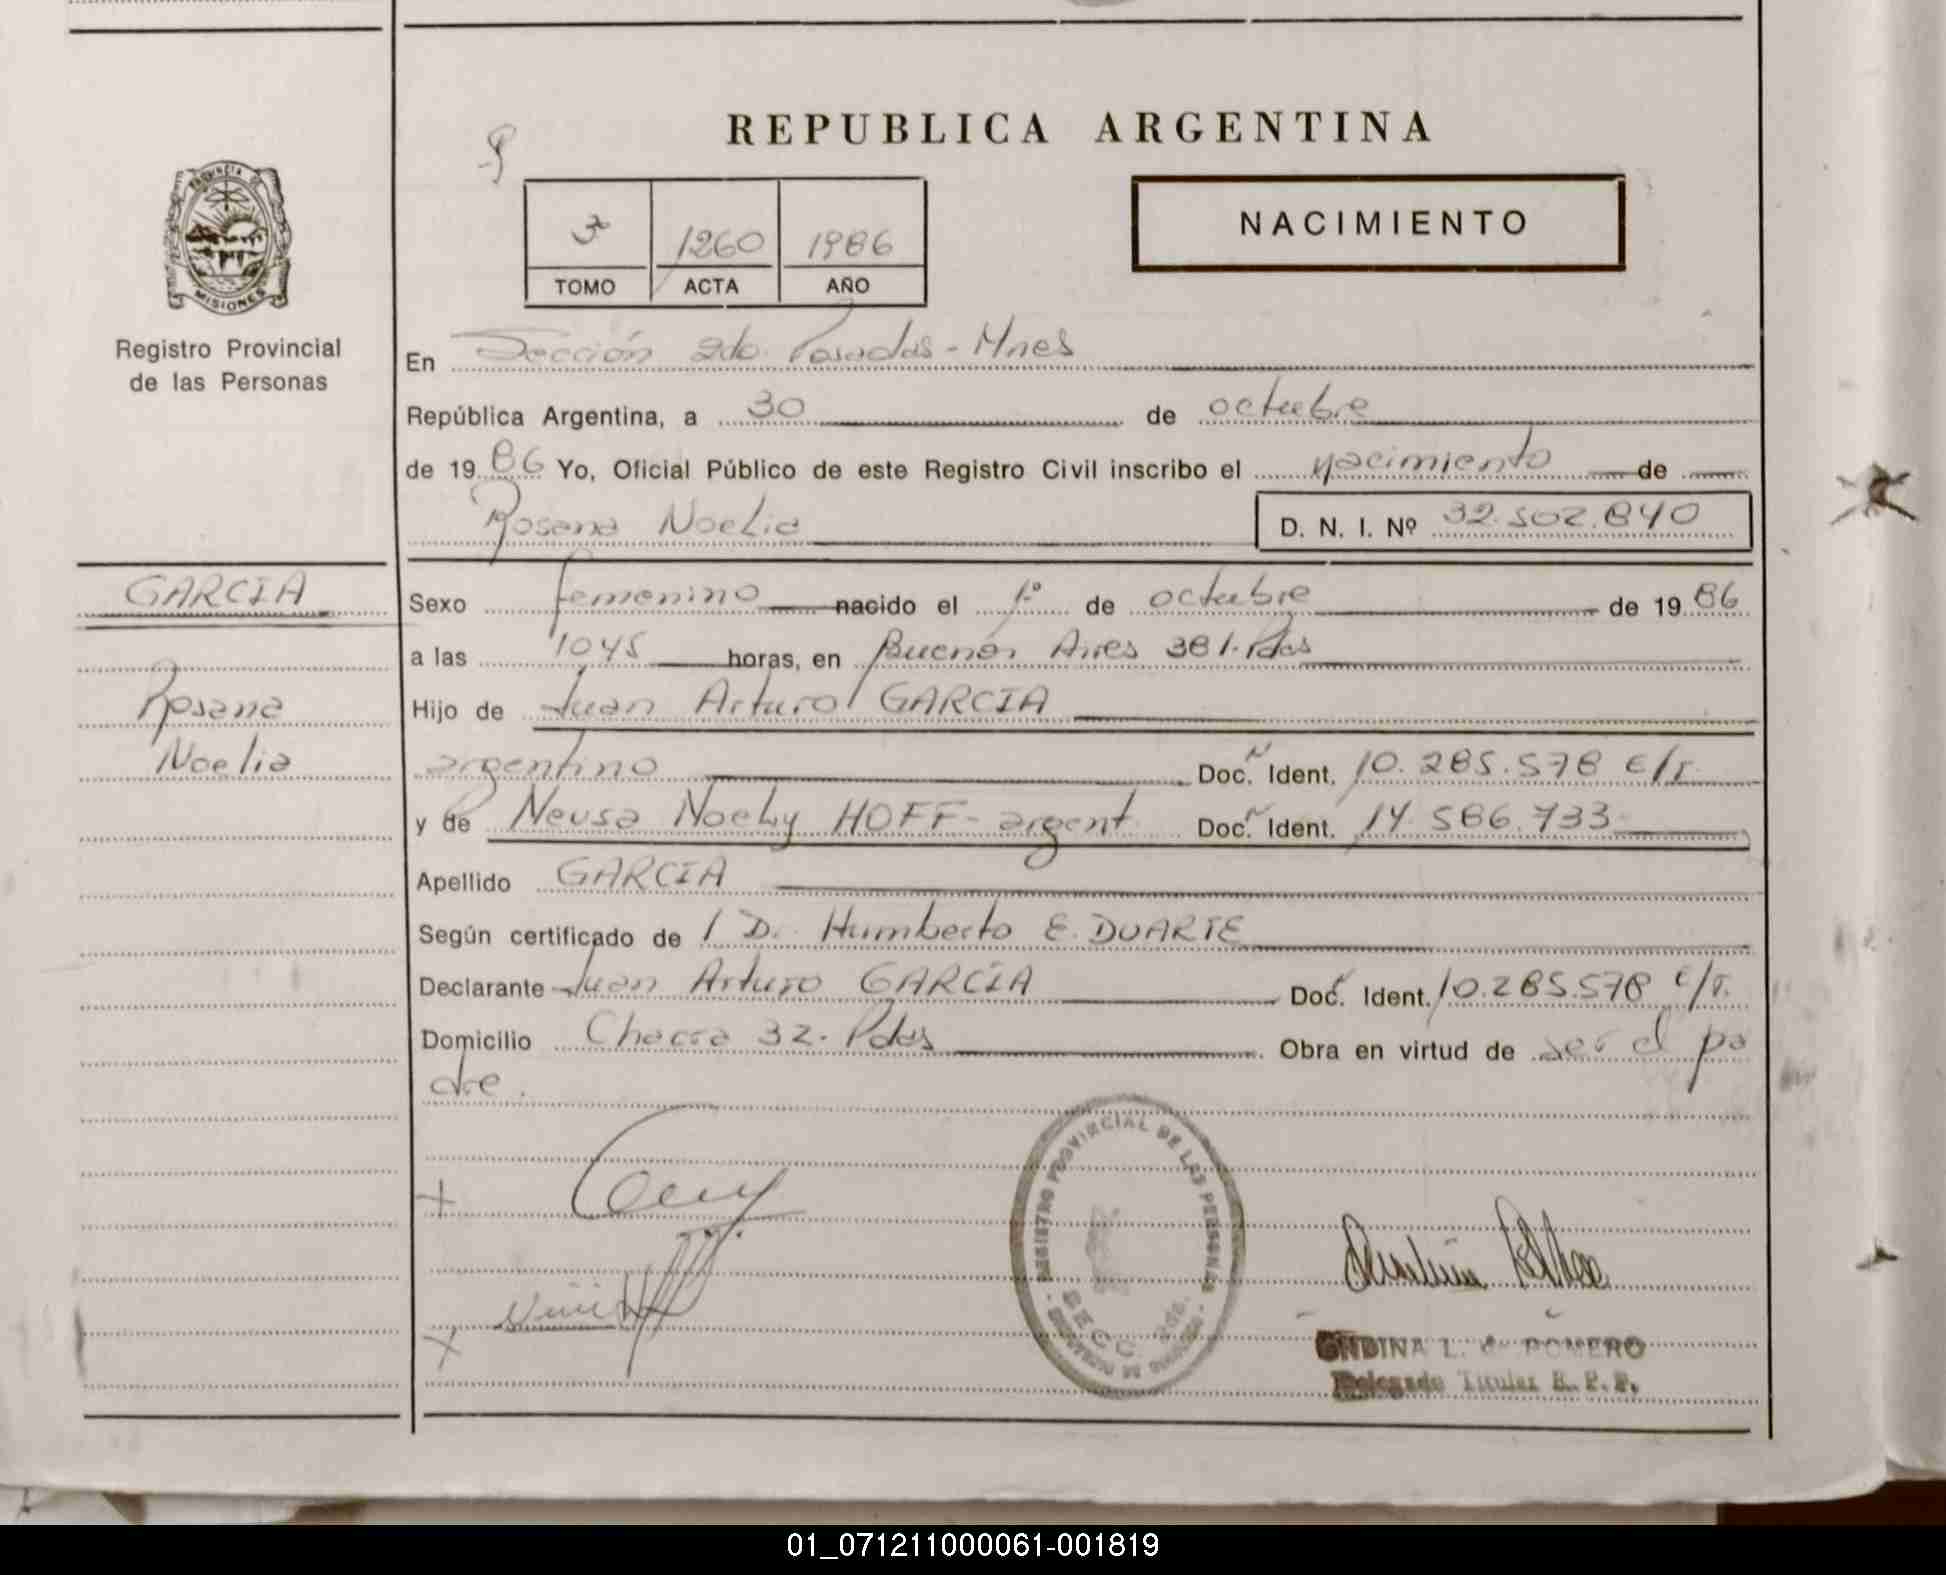 REPUBLICA ARGENTINA
NACIMIENTO
3º 1260 1986
TOMO ACTA AÑO
PROVINCIA DE
MISIONES
Registro Provincial
de las Personas
En Sección 2do. Posadas - Mnes
República Argentina, a 30 de octubre
de 1986 Yo, Oficial Público de este Registro Civil inscribo el nacimiento de
Rosana Noelia D. N. I. Nº 32.502.840
GARCIA
Rosana
Noelia
Sexo femenino nacido el 1º de octubre de 1986
a las 1045 horas, en Buenos Aires 381. Pdas
Hijo de Juan Arturo GARCIA
argentino Doc. Ident. 10.285.578 c/I.
y de Neusa Noely HOFF - argent Doc. Ident. 14.586.733
Apellido GARCIA
Según certificado de / D. Humberto E. DUARTE
Declarante Juan Arturo GARCIA Doc. Ident. 10.285.578 c/I.
Domicilio Chacra 32. Pdas Obra en virtud de ser el pa
dre.
REGISTRO PROVINCIAL DE LAS PERSONAS
SECC. 2da.
ONDINA L. de ROMERO
Delegado Titular R. P. P.
01_071211000061-001819